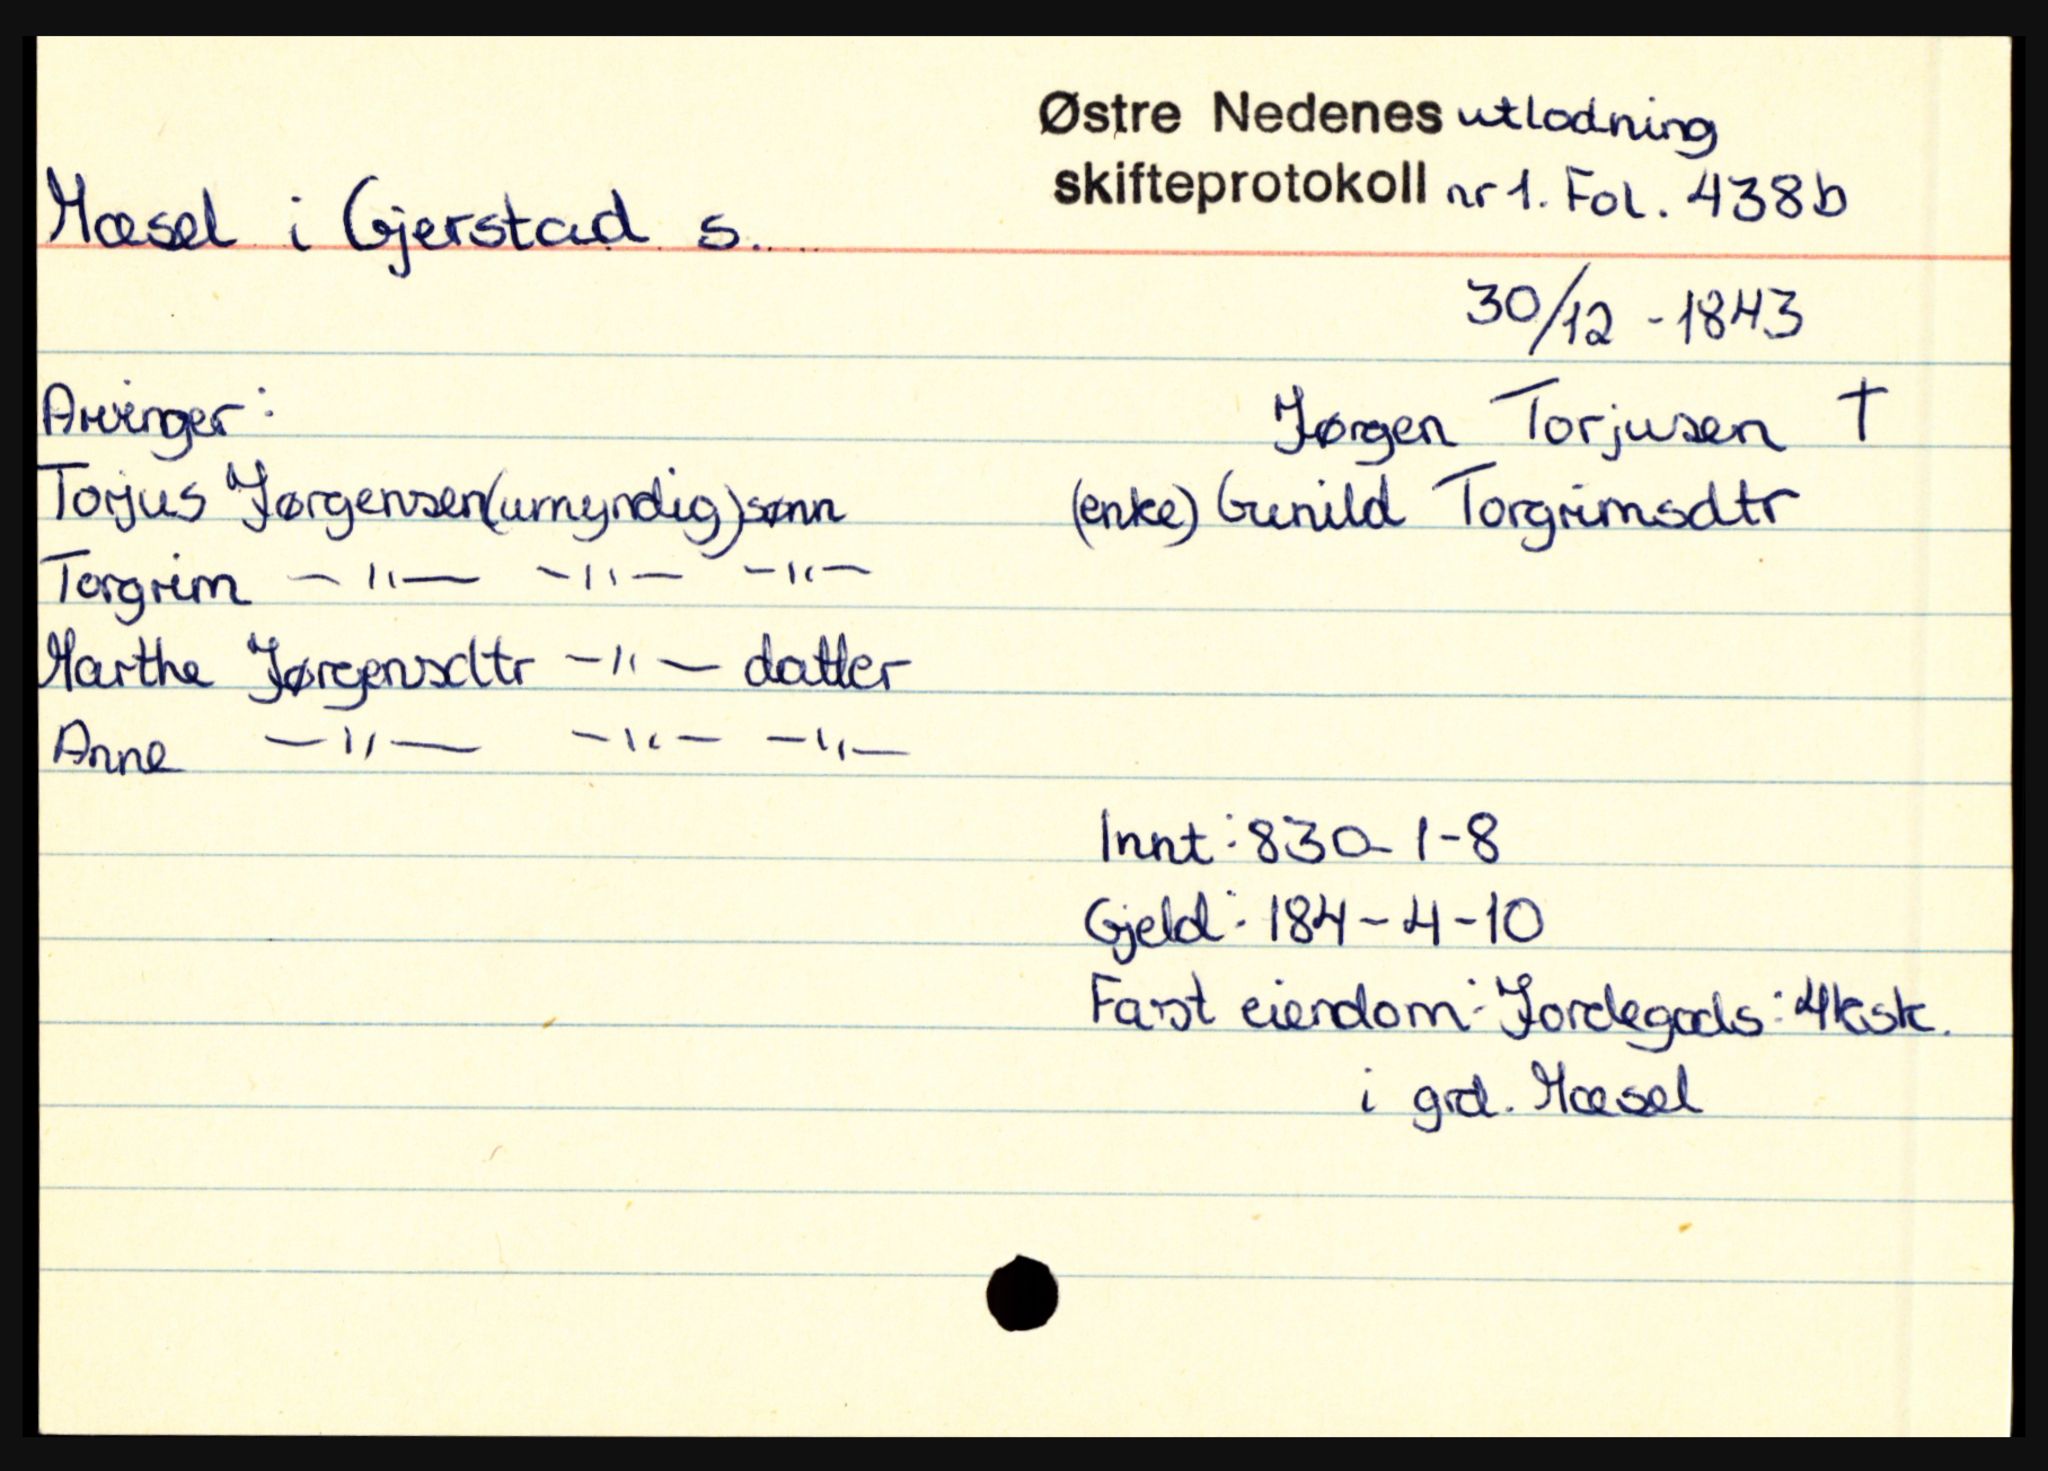 Østre Nedenes utlodning
skifteprotokoll nr 1. Fol. 438b
Mæsel i Gjerstad s.
30/12 - 1843
Arvinger:
Jørgen Torjusen †
Torjus Jørgensen (umyndig) sønn
(enke) Gunild Torgrimsdtr
Torgrim —"— —"— —"—
Marthe Jørgensdtr —"— datter
Anne —"— —"— —"—
Innt: 830-1-8
Gjeld: 184-4-10
Fast eiendom: Jordegods: 4 ksk.
i grd. Mæsel